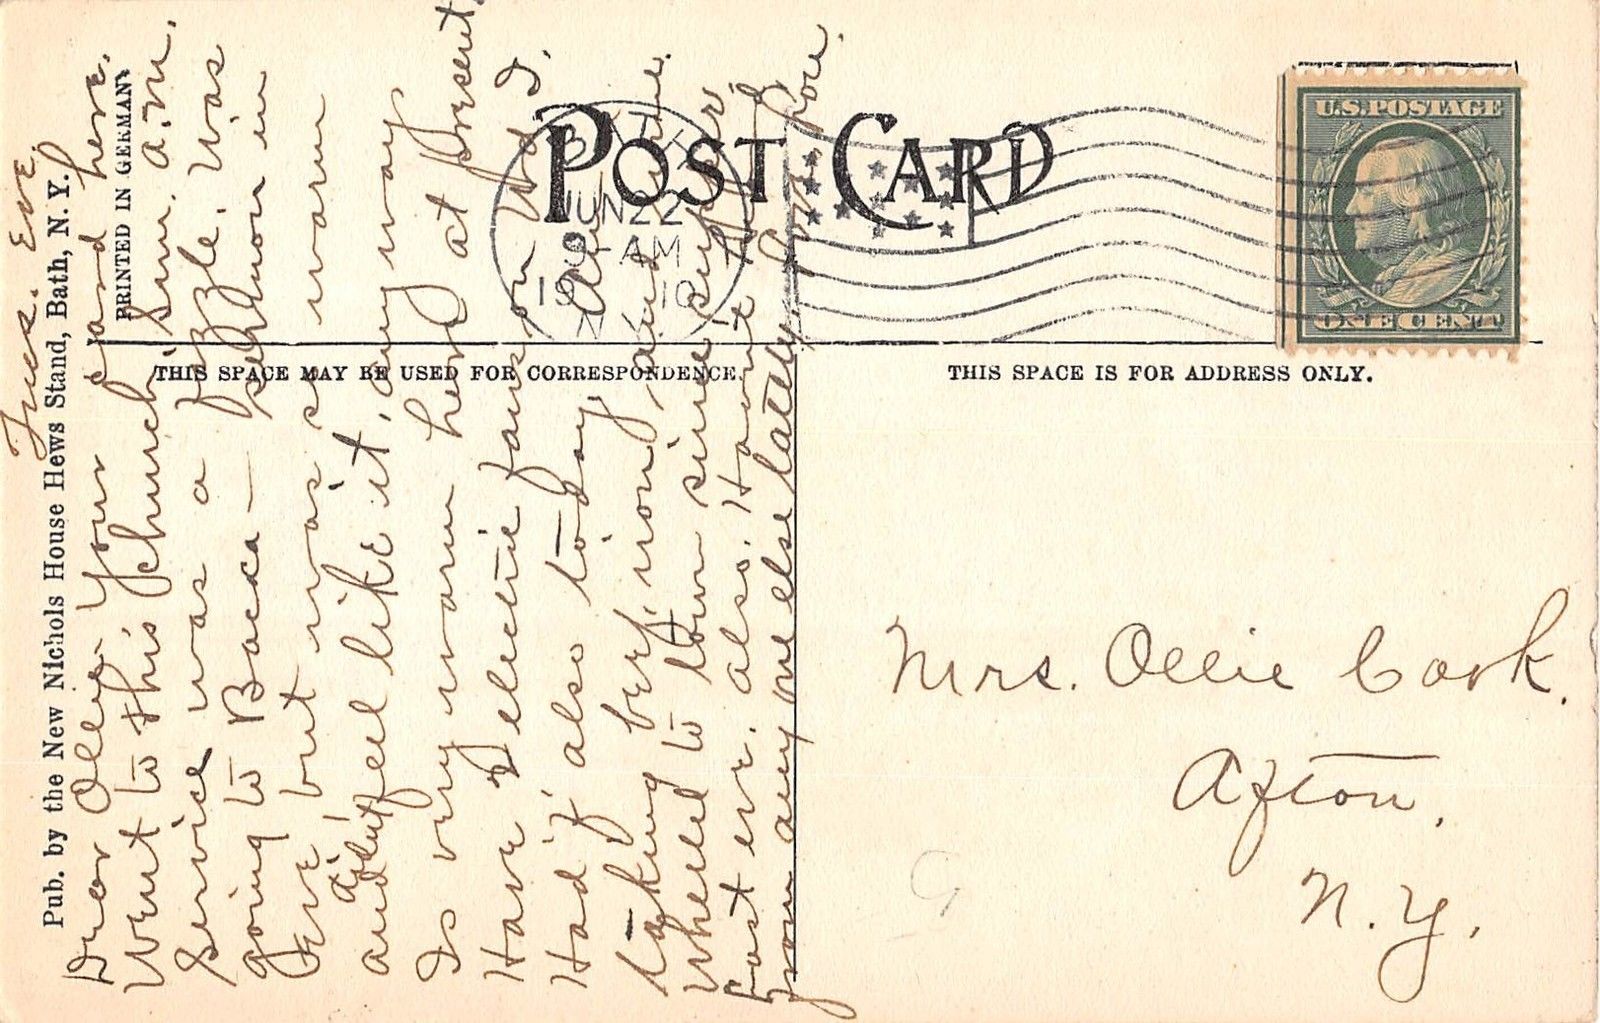 POST CARD
BATH
JUN 22
9 - AM
1910
N.Y.
U.S. POSTAGE
ONE CENT
THIS SPACE MAY BE USED FOR CORRESPONDENCE.
THIS SPACE IS FOR ADDRESS ONLY.
Pub. by the New Nichols House Hews Stand, Bath, N. Y.
PRINTED IN GERMANY
Tues. Eve.
Dear Ollie- Your card here.
Went to this church Sun. a.m.
Service was a fizzle. Was
going to Bacca-
Eve, but was so warm
and didn't feel like it, any way
Is very warm here at present.
Have electric fans on
Had also to-day.
taking and
Wheeled to town since supper
last eve. also. Haven't
from any one else lately
Mrs. Ollie Cook.
Afton,
N. Y.